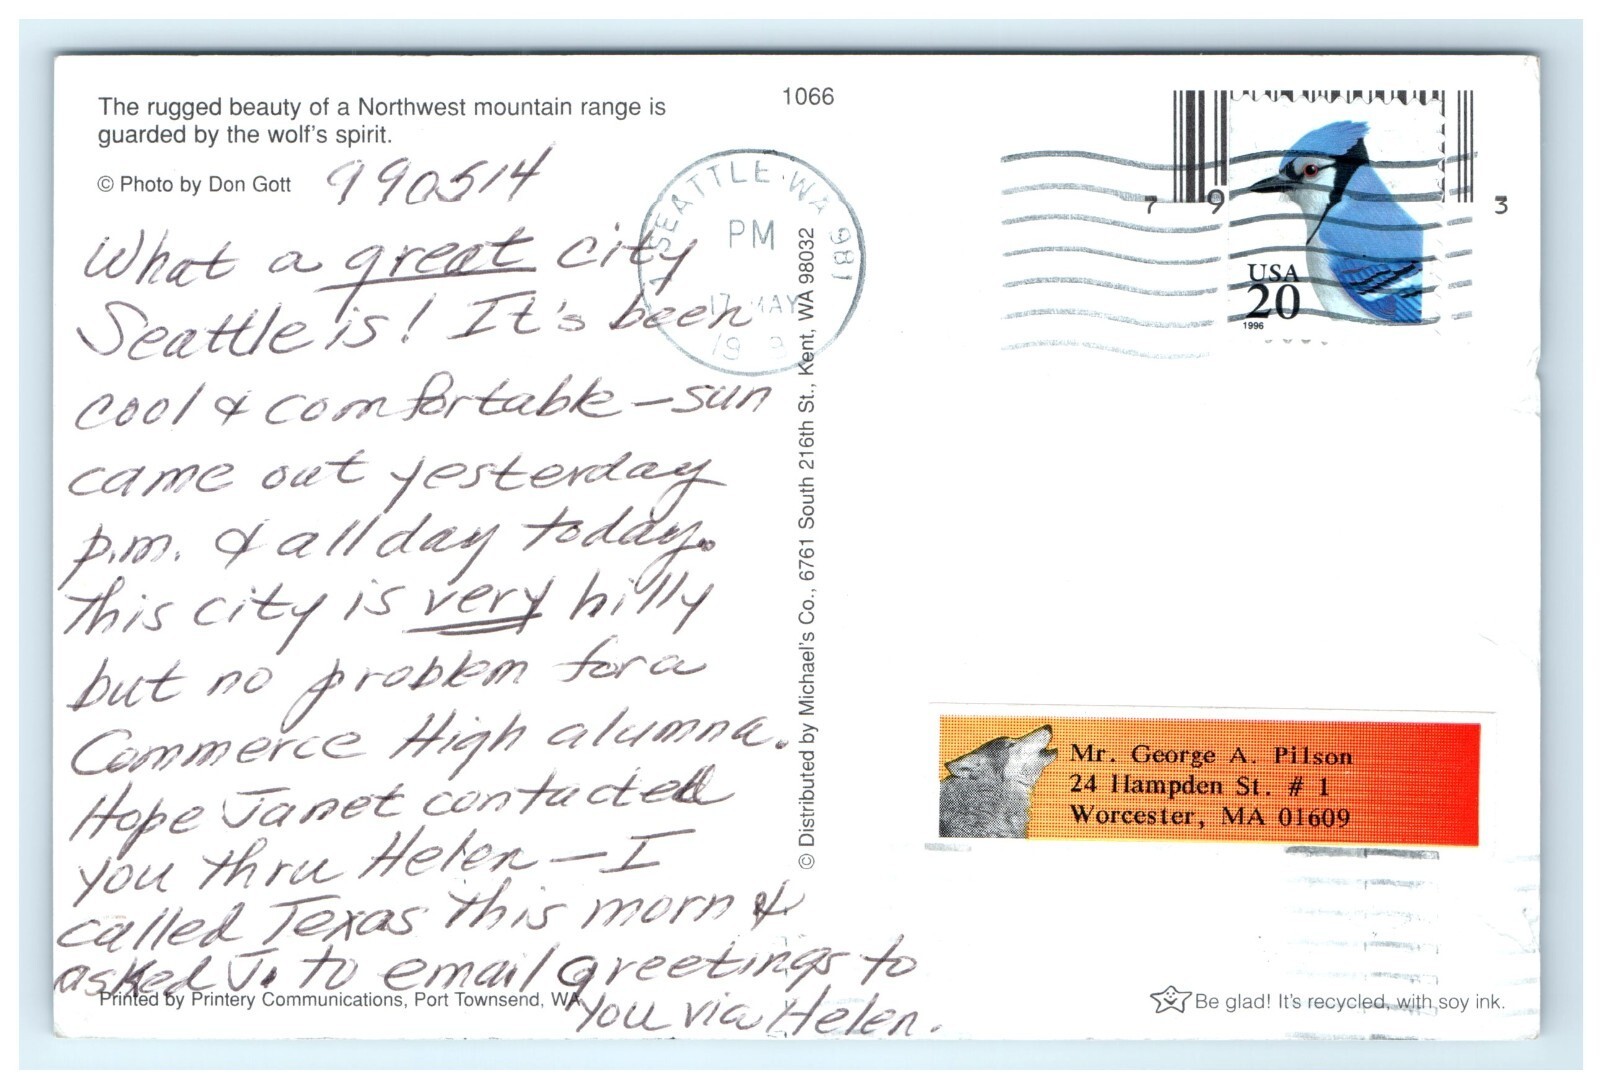 The rugged beauty of a Northwest mountain range is
guarded by the wolf's spirit.
© Photo by Don Gott
990514
1066
What a great city
Seattle is! It's been
cool & comfortable – sun
came out yesterday
p.m. & all day today.
This city is very hilly
but no problem for a
Commerce High alumna.
Hope Janet contacted
you thru Helen – I
called Texas this morn &
asked J. to email greetings to
you via Helen.
Printed by Printery Communications, Port Townsend, WA
© Distributed by Michael's Co., 6761 South 216th St., Kent, WA 98032
SEATTLE WA 981
PM
17 MAY
19 9
7 9 3
USA
20
1996
Mr. George A. Pilson
24 Hampden St. # 1
Worcester, MA 01609
Be glad! It's recycled, with soy ink.